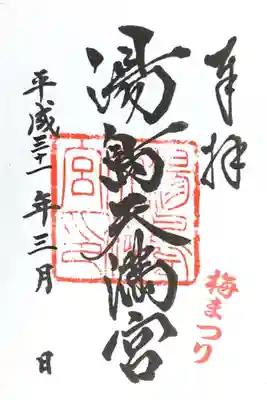 奉拝
湯島天満宮
梅まつり
平成三十一年三月 日